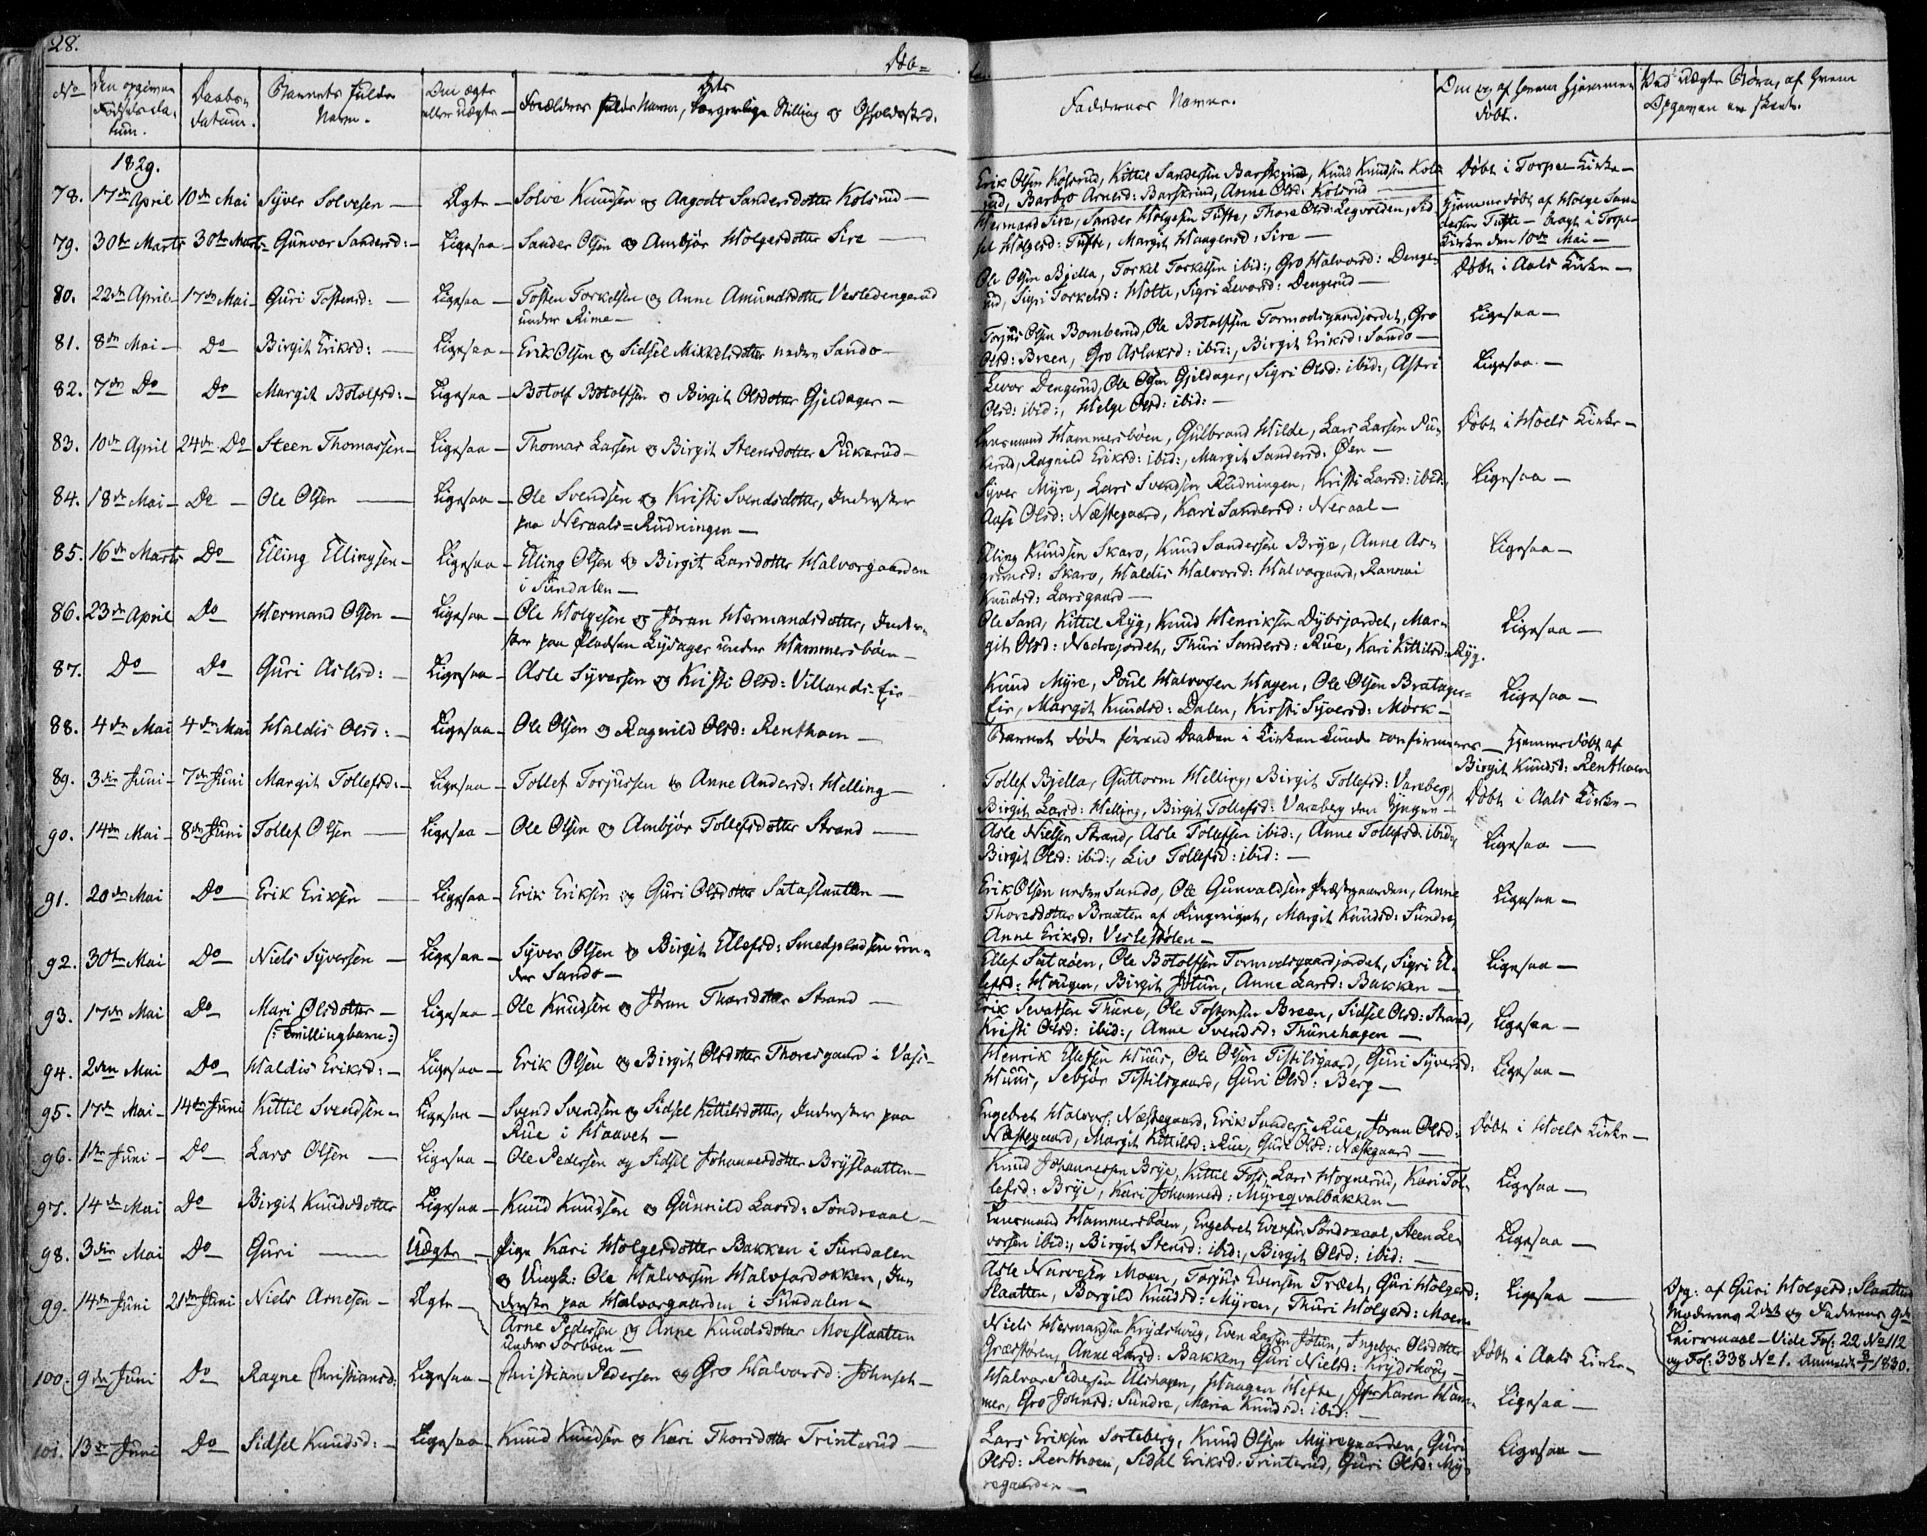 28.
Døb=
No
Den opgivne
Fødselsda-
tum.
Daabs-
datum.
Barnets fulde
Navn.
Om ægte
eller uægte
Forældres fulde Navn, borgerlige Stilling og Opholdssted.
Faddernes Navne.
Om og af hvem hjemme-
døbt.
Ved uægte Børn, af hvem
Opgaven er skeet.
1829.
78. 17de April 10de Mai Syver Solvesen — Ægte — Solve Knudsen og Aagodt Sandersdotter Kolsrud —
Erik Olsen Kolsrud, Kittil Sandersen Barskrud, Knud Knudsen Kols-
rud, Barbro Arnesd: Barskrud, Anne Olsd: Kolsrud —
Døbt i Torpe Kirke —
79. 30te Marts 30te Marts Gunvor Sandersd: — Ligesaa — Sander Olsen og Ambjør Holgersdotter Sire —
Hermand Sire, Sander Holgesen Tufte, Thore Olsd: Legvolden, Sid-
sel Holgersd: Tufte, Margit Haagensd: Sire —
Hjemmedøbt af Holge San-
dersen Tufte — bragt i Torpe
Kirke den 10de Mai —
80. 22de April 17de Mai Guri Tostensd: — Ligesaa — Tosten Torkelsen og Anne Amundsdotter Vesledengerud
under Rime —
Ole Olsen Bjella, Torkel Torkelsen ibid:, Gro Halvorsd: Denge-
rud, Sigri Torkelsd: Holte, Sigri Levorsd: Dengerud —
Døbt i Aals Kirke —
81. 8de Mai — Do Birgit Eriksd: — Ligesaa — Erik Olsen og Sidsel Mikkelsdotter nedre Sando —
Torjus Olsen Bomberud, Ole Botolfsen Tormodsgaardjordet, Gro
Olsd: Breen, Gro Aslaksd: ibid:, Birgit Eriksd: Sando —
Ligesaa —
82. 7de Do Do Margit Botolfsd: — Ligesaa — Botolf Botolfsen og Birgit Olsdotter Gjeldager —
Levor Dengerud, Ole Olsen Gjeldager, Sigri Olsd: ibid:, Astri
Olsd: ibid:, Helge Olsd: ibid: —
Ligesaa —
83. 10de April 24de Do Steen Thomassen — Ligesaa — Thomas Larsen og Birgit Steensdotter Pukerud —
Lensmand Hammersbøen, Gulbrand Hilde, Lars Larsen Pu-
kerud, Ragnild Eriksd: ibid:, Margit Sandersd: Øen —
Døbt i Hoels Kirke —
84. 18de Mai — Do — Ole Olsen — Ligesaa — Ole Svendsen og Kristi Svendsdotter, Inderster
paa Neraals=Rudningen —
Syver Myre, Lars Svendsen Rudningen, Kristi Larsd: ibid:,
Aasi Olsd: Næstegaard, Kari Sandersd: Neraal —
Ligesaa —
85. 16de Marts Do Elling Ellingsen — Ligesaa — Elling Olsen og Birgit Larsdotter Halvorgaarden
i Sundalen —
Elling Knudsen Skaro, Knud Sandersen Brye, Anne As-
grimsd: Skaro, Haldis Halvorsd: Halvorgaard, Rannoi
Knudsd: Larsgaard —
Ligesaa —
86. 23de April Do Hermand Olsen — Ligesaa — Ole Holgesen og Jøran Hermandsdotter, Inder-
ster paa Pladsen Lysager under Hammersbøen —
Ole Sand, Kittil Ryg, Knud Henriksen Dybsjordet, Mar-
git Olsd: Nedrejordet, Thuri Sandersd: Rue, Kari Kittilsd: Ryg.
Ligesaa —
87. Do Do Guri Aslesd: — Ligesaa — Asle Syversen og Kristi Olsd: Villands-Eie —
Knud Myre, Poul Halvorsen Hagen, Ole Olsen Bratager-
Eie, Margit Knudsd: Dalen, Kirsti Syversd: Mørk —
Ligesaa —
88. 4de Mai 4de Mai Haldis Olsd: — Ligesaa — Ole Olsen og Ragnild Olsd: Renthoen —
Barnet døde førend Daaben i Kirken kunde confirmeres — Hjemmedøbt af
Birgit Knudsd: Renthoen
89. 3die Juni — 7de Juni Margit Tollefsd: — Ligesaa — Tollef Torjussen og Anne Andersd: Helling —
Tollef Bjella, Guttorm Helling, Birgit Tollefsd: Vareberg,
Birgit Larsd: Helling, Birgit Tollefsd: Vareberg den Yngre —
Døbt i Aals Kirke —
90. 14de Mai — 8de Juni Tollef Olsen — Ligesaa — Ole Olsen og Ambjør Tollefsdotter Strand —
Asle Nielsen Strand, Asle Tollefsen ibid:, Anne Tollefsd: ibid:,
Birgit Olsd: ibid:, Liv Tollefsd: ibid: —
Ligesaa —
91. 20de Mai Do Erik Eriksen — Ligesaa — Erik Eriksen og Guri Olsdotter Sataslaatten —
Erik Olsen nedre Sando, Ole Gunvaldsen Præstegaarden, Anne
Thoresdotter Braaten af Ringeriget, Margit Knudsd: Sundre,
Anne Eriksd: Veslestølen —
Ligesaa —
92. 30te Mai Do Niels Syversen — Ligesaa — Syver Olsen og Birgit Ellefsd: Smedpladsen un-
der Sando —
Ellef Sataøen, Ole Botolfsen Tormodsgaardjordet, Sigri El-
lefsd: Haugen, Birgit Jøtun, Anne Larsd: Bakken —
Ligesaa —
93. 17de Mai Do Mari Olsdotter — Ligesaa — Ole Knudsen og Jøran Thorsdotter Strand —
(: Tvillingbarn :)
Erik Sevatsen Thune, Ole Tostensen Breen, Sidsel Olsd: Strand,
Kristi Olsd: ibid:, Anne Svendsd: Thunehagen —
Ligesaa —
94. 2den Mai Do Haldis Eriksd: — Ligesaa — Erik Olsen og Birgit Olsdotter Thoresgaard i Vats —
Henrik Ellefsen Huus, Ole Olsen Tistilsgaard, Guri Syversd:
Huus, Sebjør Tistilsgaard, Guri Olsd: Berg —
Ligesaa —
95. 17de Mai — 14de Juni Kittil Svendsen — Ligesaa — Svend Svendsen og Sidsel Kittilsdotter, Inderster paa
Rue i Haavet —
Engebret Halvors: Næstegaard, Erik Sanders: Rue, Jøran Olsd:
Næstegaard, Margit Kittilsd: Rue, Guri Olsd: Næstegaard —
Døbt i Hoels Kirke —
96. 1ste Juni — Do Lars Olsen — Ligesaa — Ole Pedersen og Sidsel Johannesdotter Bryslaatten —
Knud Johannessen Brye, Kittil Foss, Lars Hognerud, Kari Tol-
lefsd: Brye, Kari Johannesd: Myreqvalbakken —
Ligesaa —
97. 14de Mai Do Birgit Knudsdotter Ligesaa — Knud Knudsen og Gunnild Larsd: Sondreaal —
Lensmand Hammersbøen, Engebret Evensen Sondreaal, Steen Le-
vorsen ibid:, Birgit Steensd: ibid:, Birgit Olsd: ibid: —
Ligesaa —
98. 3die Mai Do Guri — Uægte — Pige Kari Holgersdotter Bakken i Sundalen
og Ungk: Ole Halvorsen Halvfardokken, In-
derster paa Halvorgaarden i Sundalen —
Asle Narvesen Moen, Torjus Evensen Træet, Guri Holgersd:
Slaatten, Borgild Knudsd: Myren, Thuri Holgersd: Moen
Ligesaa —
Opg: af Guri Holgersd: Slaatten
Moderens 2det og Faderens 9de
Leiermaal — Vide Fol: 22 No 112
og Fol: 338 No 1. Anmeldt 1830.
99. 14de Juni 21de Juni Niels Arnesen — Ægte — Arne Pedersen og Anne Knudsdotter Moeslaatten
under Torbøen —
Niels Hermandsen Krydshoug, Even Larsen Jøtun, Ingebor Olsdotter
Græstøren, Anne Larsd: Bakken, Guri Nielsd: Krydshoug —
Døbt i Aals Kirke —
100. 9de Juni Do Ragne Christiansd: Ligesaa — Christian Pedersen og Gro Halvorsd: Johnseth —
Halvor Pedersen Ulshagen, Haagen Hefte, Karen Ham-
mer, Gro Johnsd: Sundre, Maria Knudsd: ibid: —
Ligesaa —
101. 13de Juni Do Sidsel Knudsd: — Ligesaa — Knud Knudsen og Kari Thorsdotter Trinterud —
Lars Eriksen Sorteberg, Knud Olsen Myregaarden, Guri
Olsd: Renthoen, Sidsel Eriksd: Trinterud, Guri Olsd: My-
regaarden —
Ligesaa —